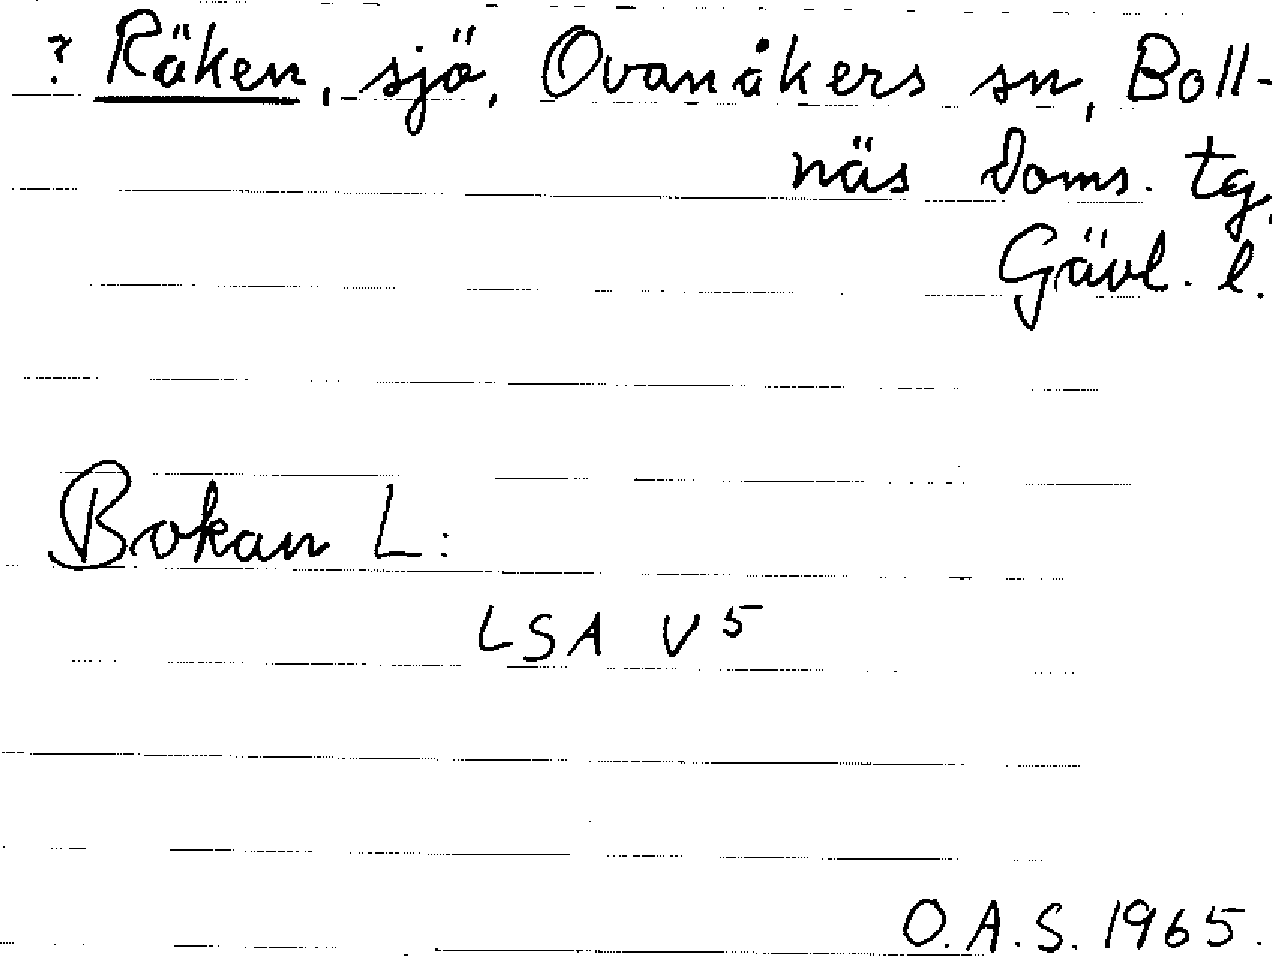 ? Räken, sjö, Ovanåkers sn, Boll-
näs doms. tg,
Gävl. l.
Bokan L:
LSA V 5
O.A.S. 1965.